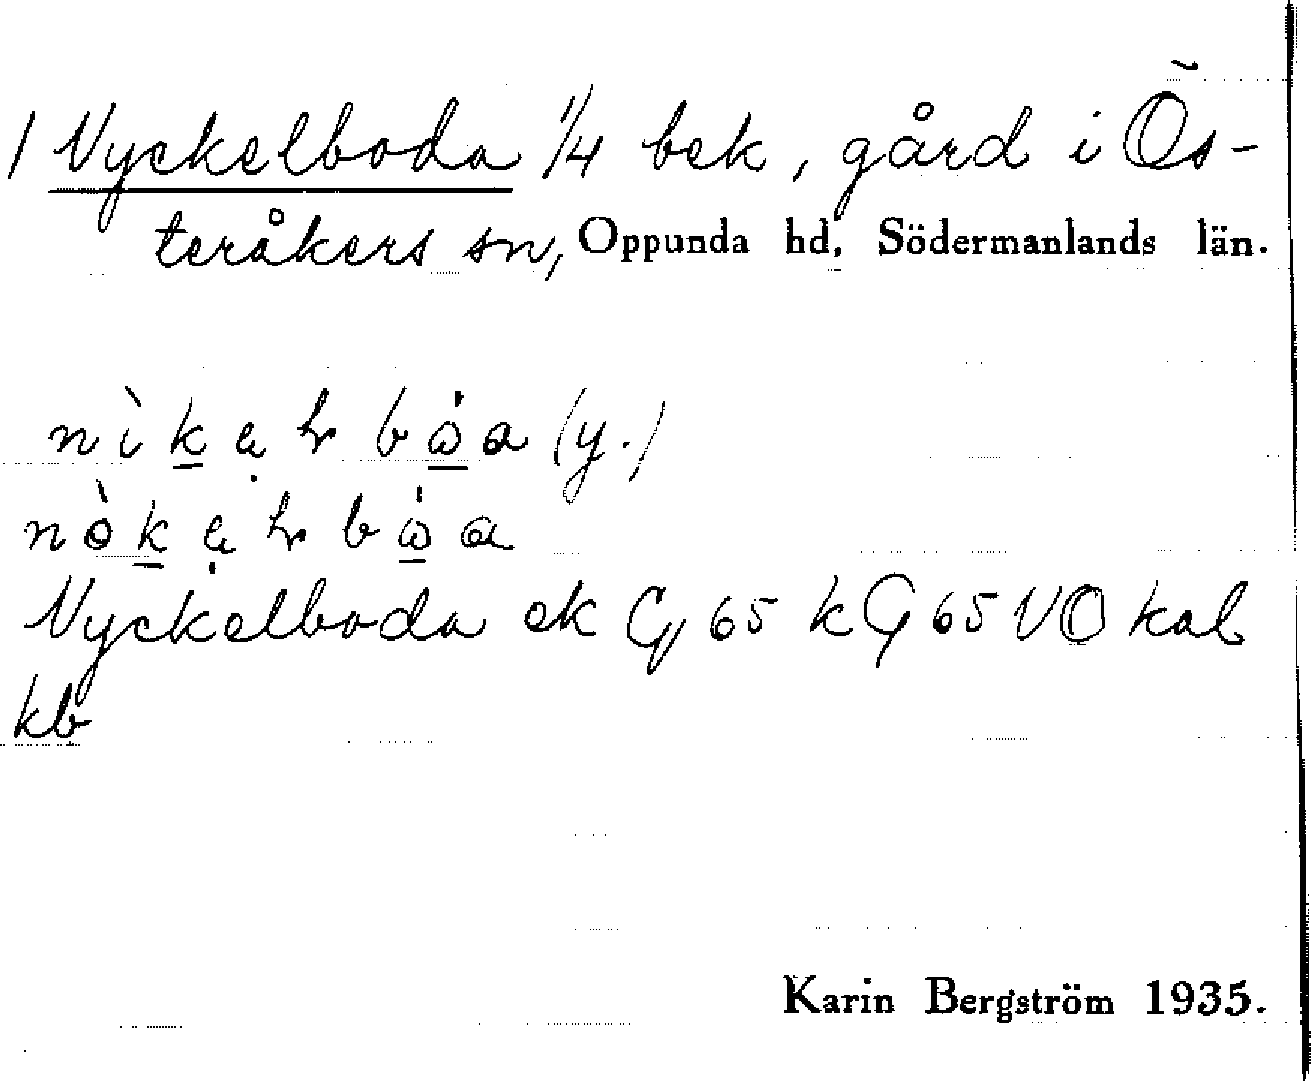 1 Nyckelboda 1/4 bek, gård i Ös-
teråkers sn, Oppunda hd, Södermanlands län.
(y.)
Nyckelboda ek G 65 k G 65 VO kab
kb
Karin Bergström 1935.